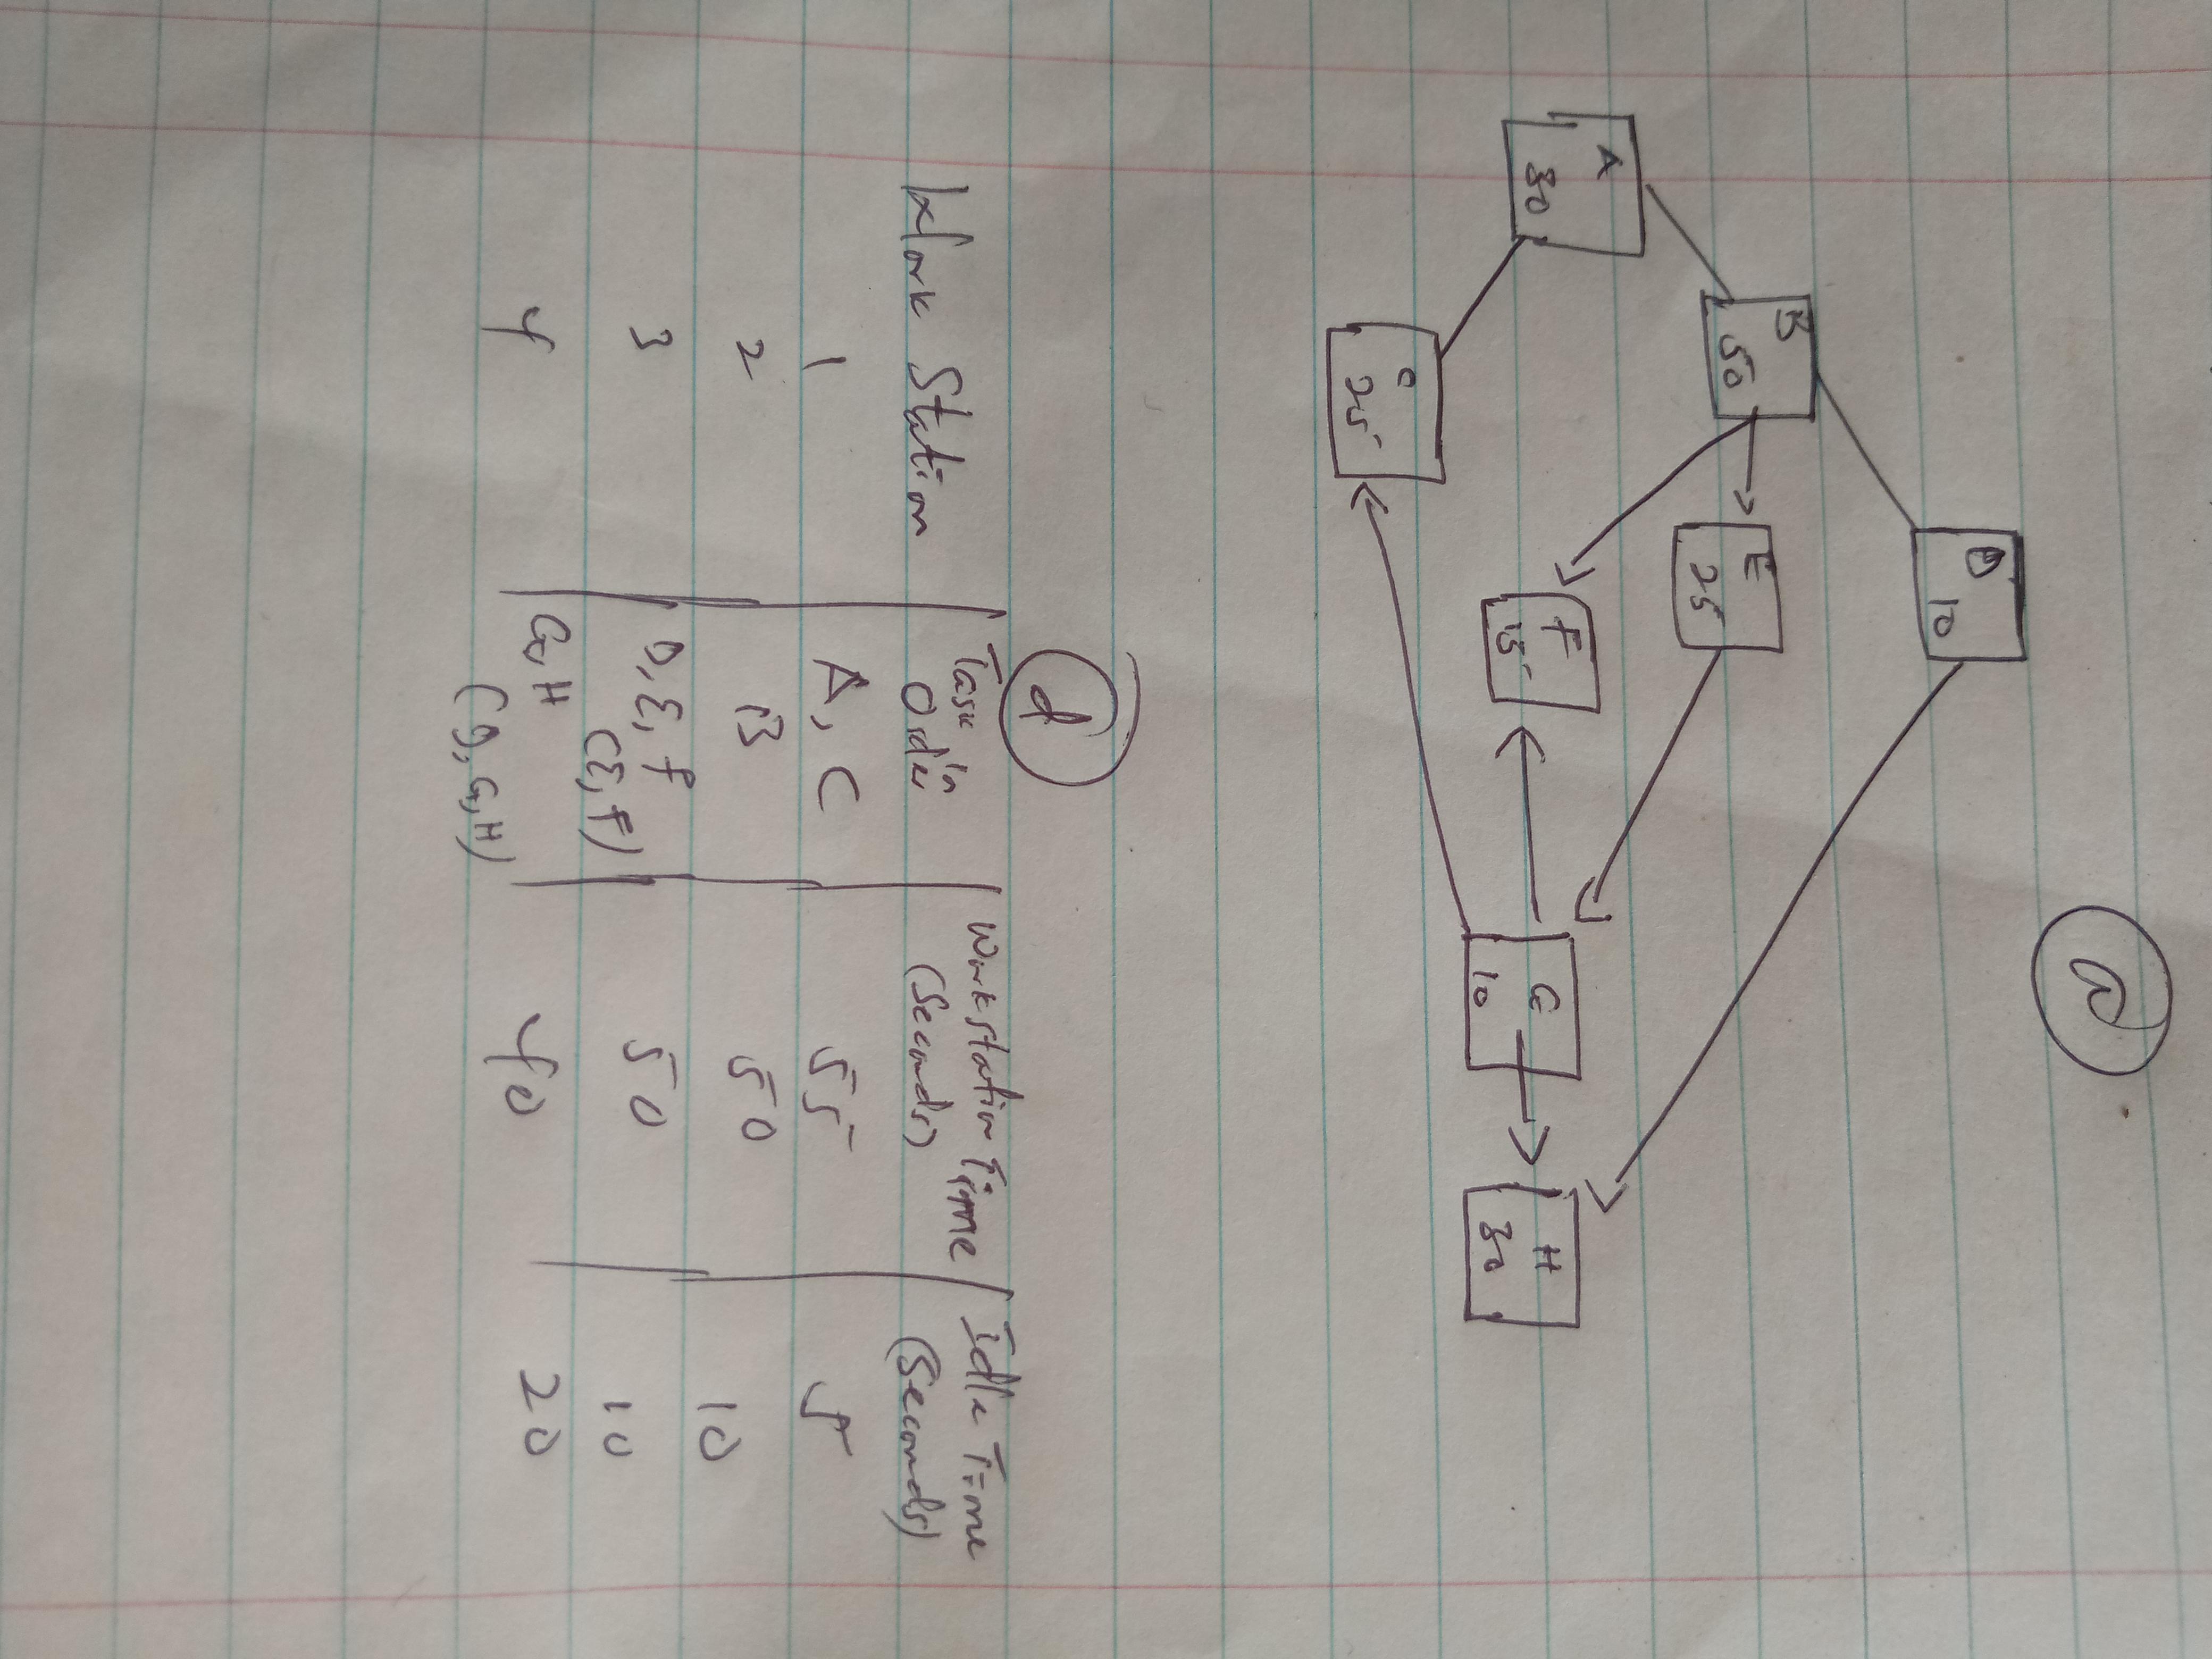 a
D
10
B
50
E
25
A
30
F
15
G
10
H
30
C
25
d
Work Station | Task in Order | Workstation Time (Seconds) | Idle Time (Seconds)
1 A, C 55 5
2 B 50 10
3 D, E, F (E, F) 50 10
4 G, H (D, G, H) 40 20